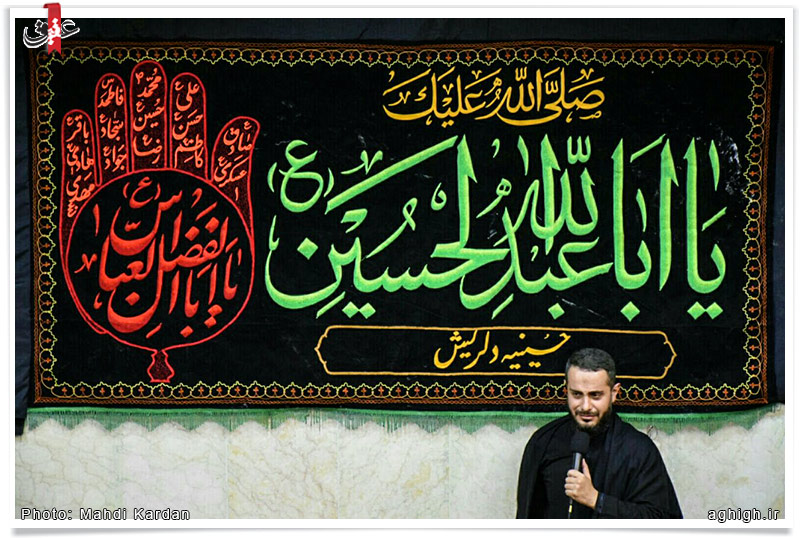 عقیق
صلی الله علیک
یا ابا عبد الله الحسین
(ع)
حسینیه دلریش
علی
حسن
کاظم
محمد
حسین
رضا
فاطمه
سجاد
جواد
باقر
هادی
مهدی
صادق
عسکری
یا ابا الفضل العباس
(ع)
Photo: Mahdi Kardan
aghigh.ir